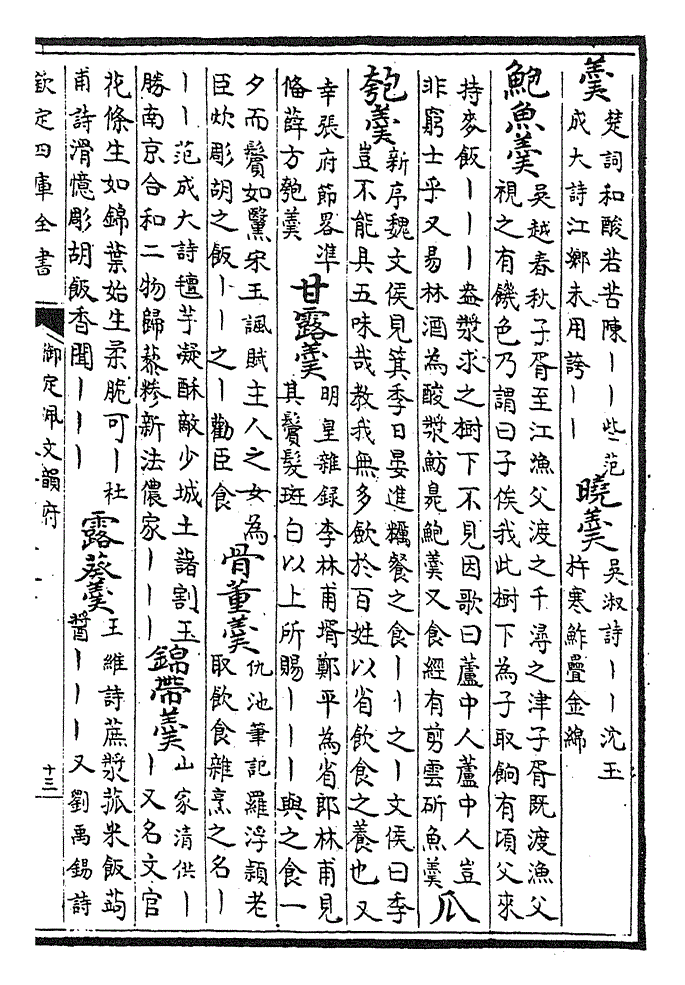 羹
楚詞和酸若苦陳丨丨些范
成大詩江鄉未用誇丨丨
曉羹
吳淑詩丨丨沈玉
杵寒鮓疊金綿
鮑魚羹
吳越春秋子胥至江漁父渡之千潯之津子胥既渡漁父
視之有饑色乃謂曰子俟我此樹下為子取餉有頃父來
持麥飯丨丨丨盎漿求之樹下不見因歌曰蘆中人蘆中人豈
非窮士乎又易林酒為酸漿魴臭鮑羹又食經有剪雲斫魚羹
瓜
匏羹
新序魏文侯見箕季日晏進糲餐之食丨丨之丨文侯曰季
豈不能具五味哉教我無多歛於百姓以省飲食之養也又
幸張府節畧準
偹薛方匏羹
甘露羹
明皇雜録李林甫壻鄭平為省郎林甫見
其鬢髮斑白以上所賜丨丨丨與之食一
夕而鬢如黳宋玉諷賦主人之女為
臣炊彫胡之飯丨丨之丨勸臣食
骨董羹
仇池筆記羅浮頴老
取飲食雜烹之名丨
丨丨范成大詩氊芋凝酥敵少城土藷割玉
勝南京合和二物歸藜糝新法儂家丨丨丨
錦帶羹
山家清供丨
丨又名文官
花條生如錦葉始生柔脆可丨杜
甫詩滑憶彫胡飯香聞丨丨丨
露葵羹
王維詩蔗漿菰米飯蒟
醬丨丨丨又劉禹錫詩
欽定四庫全書
御定佩文韻府
十三